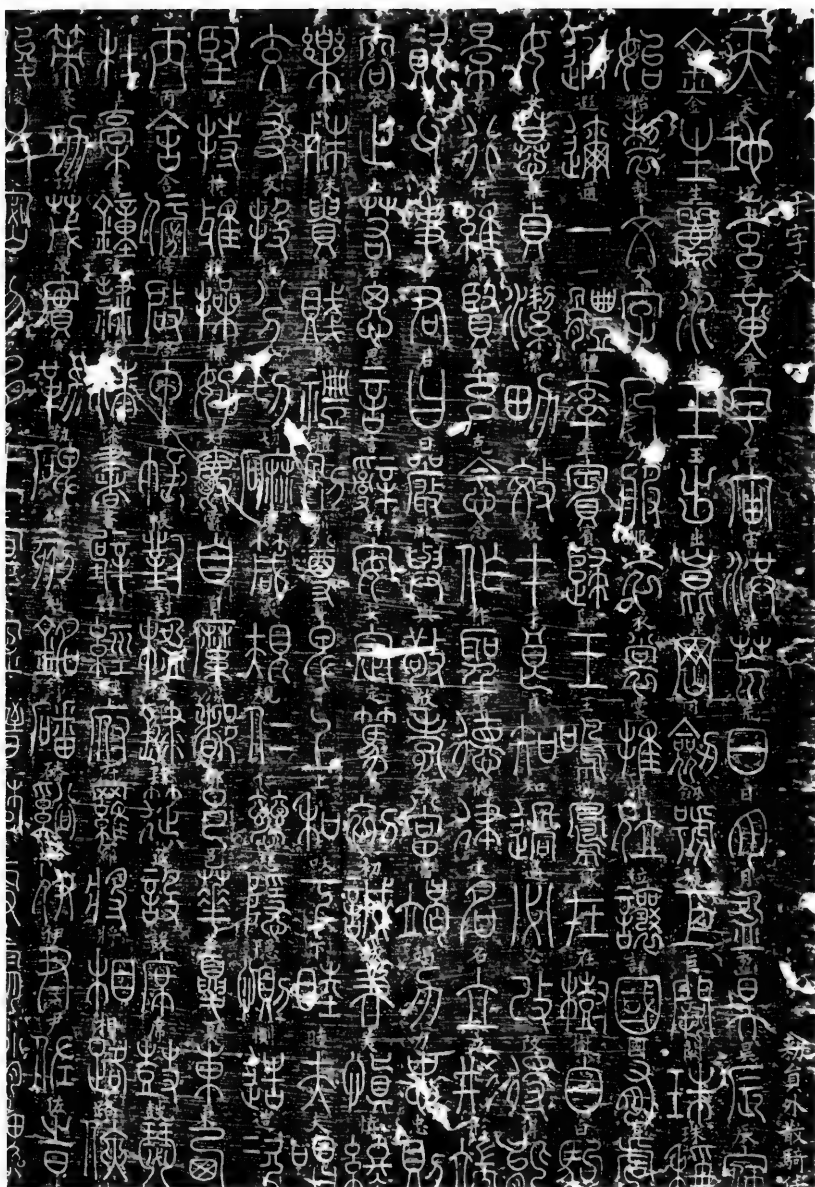 千字文 敕員外散騎侍
天地玄黃宇宙洪荒日月盈昃辰宿
金生麗水玉出崑岡劍號巨闕珠稱
始制文字乃服衣裳推位讓國有虞
遐邇一體率賓歸王鳴鳳在樹白駒
女慕貞潔男效才良知過必改得能
景行維賢克念作聖德建名立形端
資父事君曰嚴與敬孝當竭力忠則
容止若思言辭安定篤初誠美慎終
樂殊貴賤禮別尊卑上和下睦夫唱
交友投分切磨箴規仁慈隱惻造次
堅持雅操好爵自縻都邑華夏東西
丙舍傍啟甲帳對楹肆筵設席鼓瑟
杜稿鍾隸漆書壁經府羅將相路俠
策功茂實勒碑刻銘磻溪伊尹佐時
俊乂密勿多士寔寧晉楚更霸趙魏